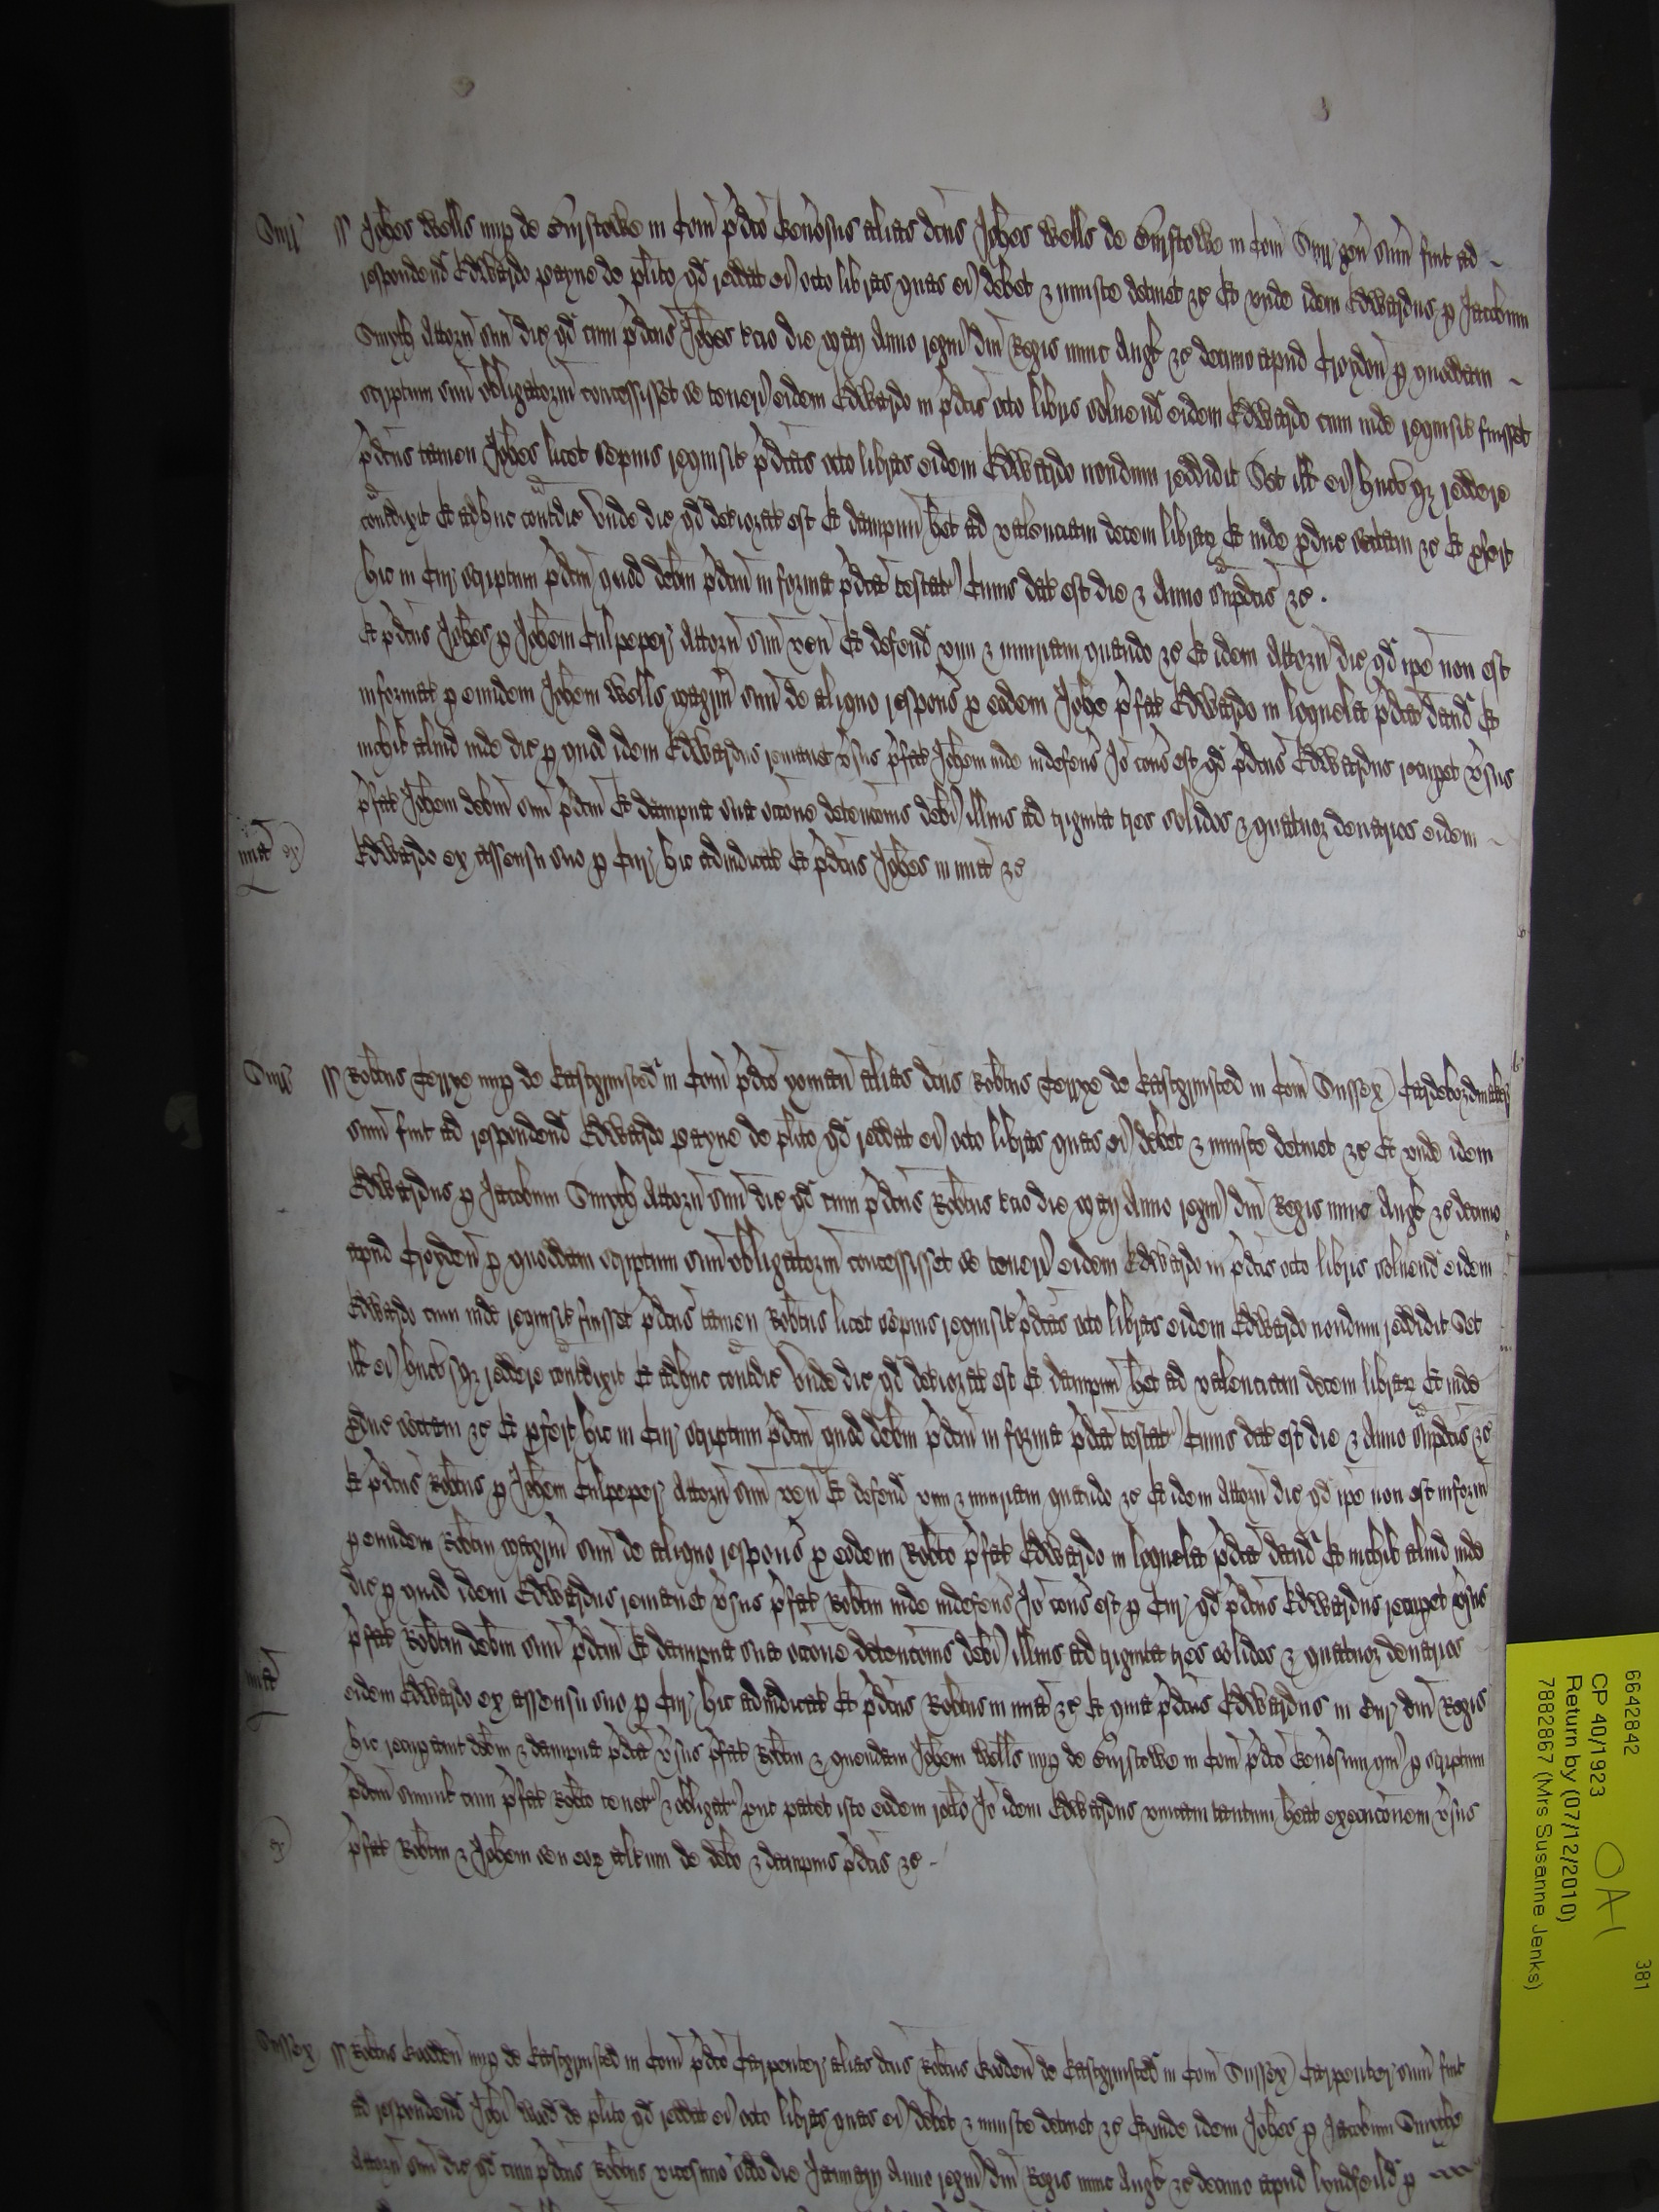 Surr ss Johes Wells nup de Burstowe in Com pdco Generosus alias dcus Johes Wells de Burstowe in Com Surr gen sum fuit ad
respondend Edwardo Payne de plito qd reddat ei octo libras quas ei debet & iniuste detinet &c Et unde idem Edwardus p Jacobum
Smyth Attorn suu dic qd cum pdcus Johes tcio die May Anno regni dni Regis nunc Angl &c decimo apud Croydon p quoddam
scriptum suu obligatoriu concessisset se teneri eidem Edwardo in pdcis octo libris solvend eidem Edwardo cum inde requisit fuisset
pdcus tamen Johes licet sepius requisit pdcas octo libras eidem Edwardo nondum reddidit Set ill ei hucusq reddere
contradixit Et adhuc contradic Unde dic qd deteriorat est Et dampnu het ad valenciam decem librar Et inde pduc sectam &c Et pfert
hic in Cur scriptum pdcm quod debm pdcm in forma pdca testat Cuius dat est die & Anno supradcis &c
Et pdcus Johes p Johem Culpeper Attorn suu ven Et defend vim & iniuriam quando &c Et idem Attorn dic qd ipe non est
informat p eundem Johem Wells magrm suu de aliquo respons p eodem Johe pfat Edwardo in loquela pdca dand Et
nichil aliud inde dic p quod idem Edwardus remanet vsus pfat Johem inde indefens Io cons est qd pdcus Edwardus recupet vsus
pfat Johem debm suu pdcm Et dampna sua occone detencionis debi illius ad triginta tres solidos & quatuor denarios eidem
mia ex Edwardo ex assensu suo p Cur hic adiudicat Et pdcus Johes in mia &c
Surr ss Robtus Terrye nup de Eastgrinsted in Com pdco yoman alias dcus Robtus Terrye de Eastgrinsted in Com Sussex
sum fuit ad respondend Edwardo Payne de plito qd reddat ei octo libras quas ei debet & iniuste detinet &c Et unde idem
Edwardus p Jacobum Smyth Attorn suu dic qd cum pdcus Robtus tcio die May Anno regni dni Regis nunc Angl &c decimo
apud Croyden p quoddam scriptum suu obligatoriu concessisset se teneri eidem Edwardo in pdcis octo libris solvend eidem
Edwardo cum inde requisit fuisset pdcus tamen Robtus licet sepius requisit pdcas octo libras eidem Edwardo nondum reddidit Set
ill ei hucusq reddere contradixit Et adhuc contradic Unde dic qd deteriorat est Et dampnu het ad valenciam decem librar Et inde
pduc sectam &c Et pfert hic in Cur scriptum pdcm quod debm pdcm in forma pdca testat Cuius dat est die & Anno supradcis &c
Et pdcus Robtus p Johem Culpeper Attorn suu ven Et defend vim & iniuriam quando &c Et idem Attorn dic qd ipe non est inform
p eundem Robtm magrm suu de aliquo respons p eodem Robto pfat Edwardo in loquela pdca dand Et nichil aliud inde
dic p quod idem Edwardus remanet vsus pfat Robtm inde indefens Io cons est p Cur qd pdcus Edwardus recupet vsus
pfat Robtm debm suu pdcm Et dampna sua occone detencionis debi illius ad triginta tres solidos & quatuor denarios
mia eidem Edwardo ex assensu suo p Cur hic adiudicat Et pdcus Robtus in mia &c Et quia pdcus Edwardus in Cur dni Regis
hic recupavit debm & dampna pdca vsus pfat Robtm & quendam Johem Wells nup de Burstowe in Com pdco Generosum qui p scriptum
pdcm simul cum pfat Robto tenet & obligat put patet isto eodem rotlo Io idem Edwardus unicam tantum heat execucionem vsus
ex pfat Robtm & Johem seu eor altum de debo & dampnis pdcis &c
Sussex ss Robtus nup de Eastgrinsted in Com pdco Carpenter alias dcus Robtus de Eastgrinsted in Com Sussex Carpenter sum fuit
ad respondend Johi Wood de plito qd reddat ei octo libras quas ei debet & iniuste detinet &c Et unde idem Johes p Jacobum Smythe
Attorn suu dic qd cum pdcus Robtus vicesimo die Januarij Anno regni dni Regis nunc Angl &c decimo apud Lyndfeild p
6642842
381
CP 40/1923
OA1
Return by (07/12/2010)
7882867 (Mrs Susanne Jenks)